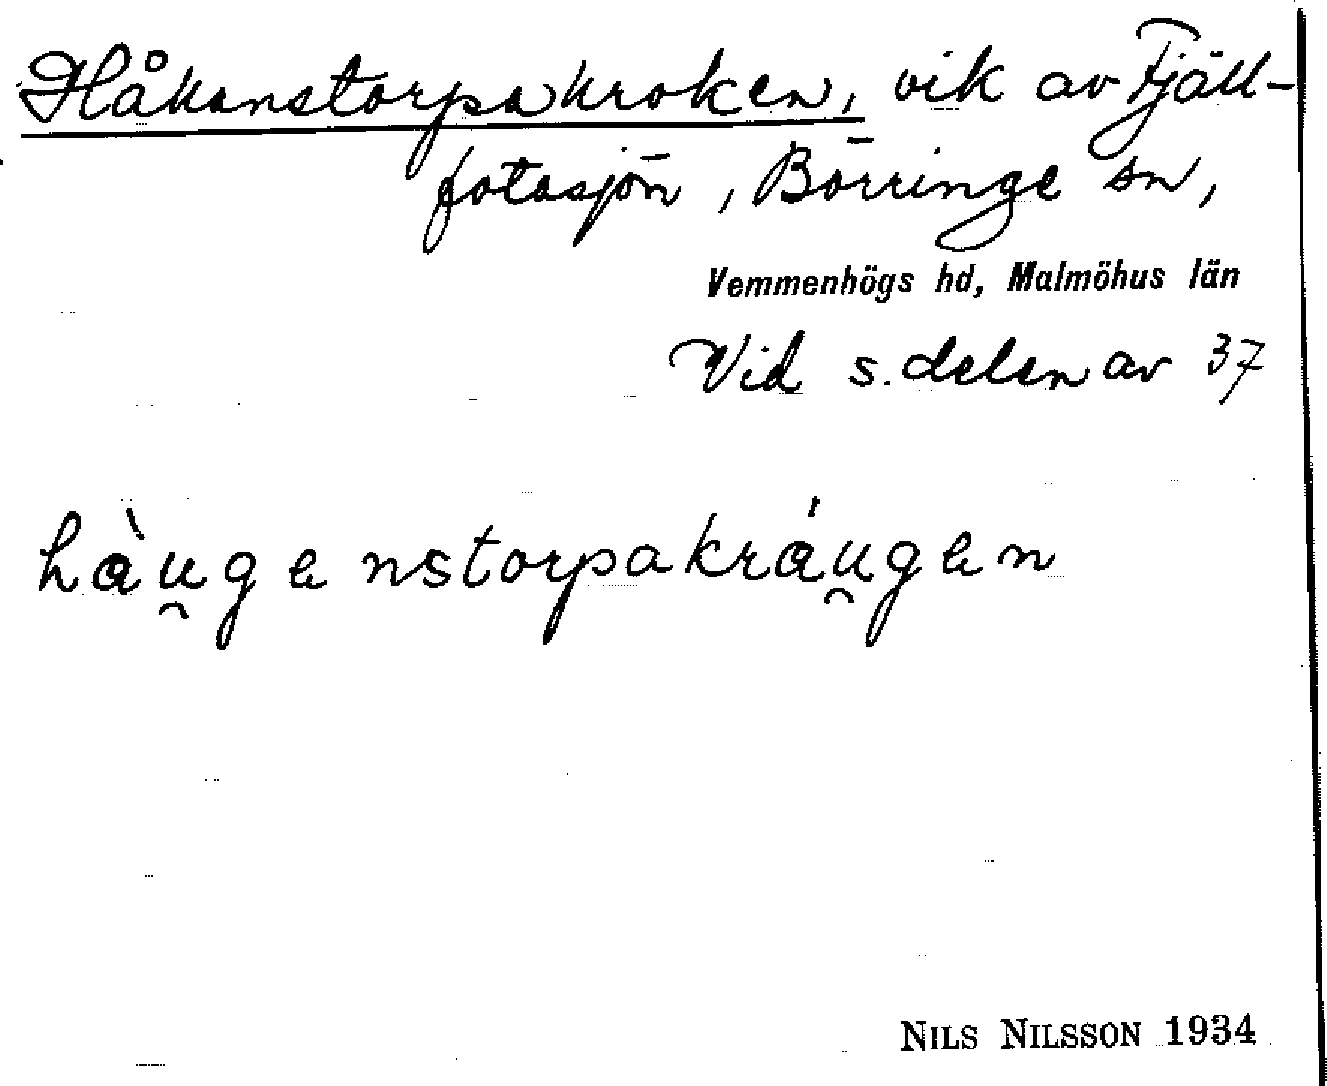 Håkanstorpakroken, vik av Fjäll-
fotasjön, Börringe sn,
Vemmenhögs hd, Malmöhus län
Vid s. delen av 37
hàu̯genstorpakráu̯gen
NILS NILSSON 1934